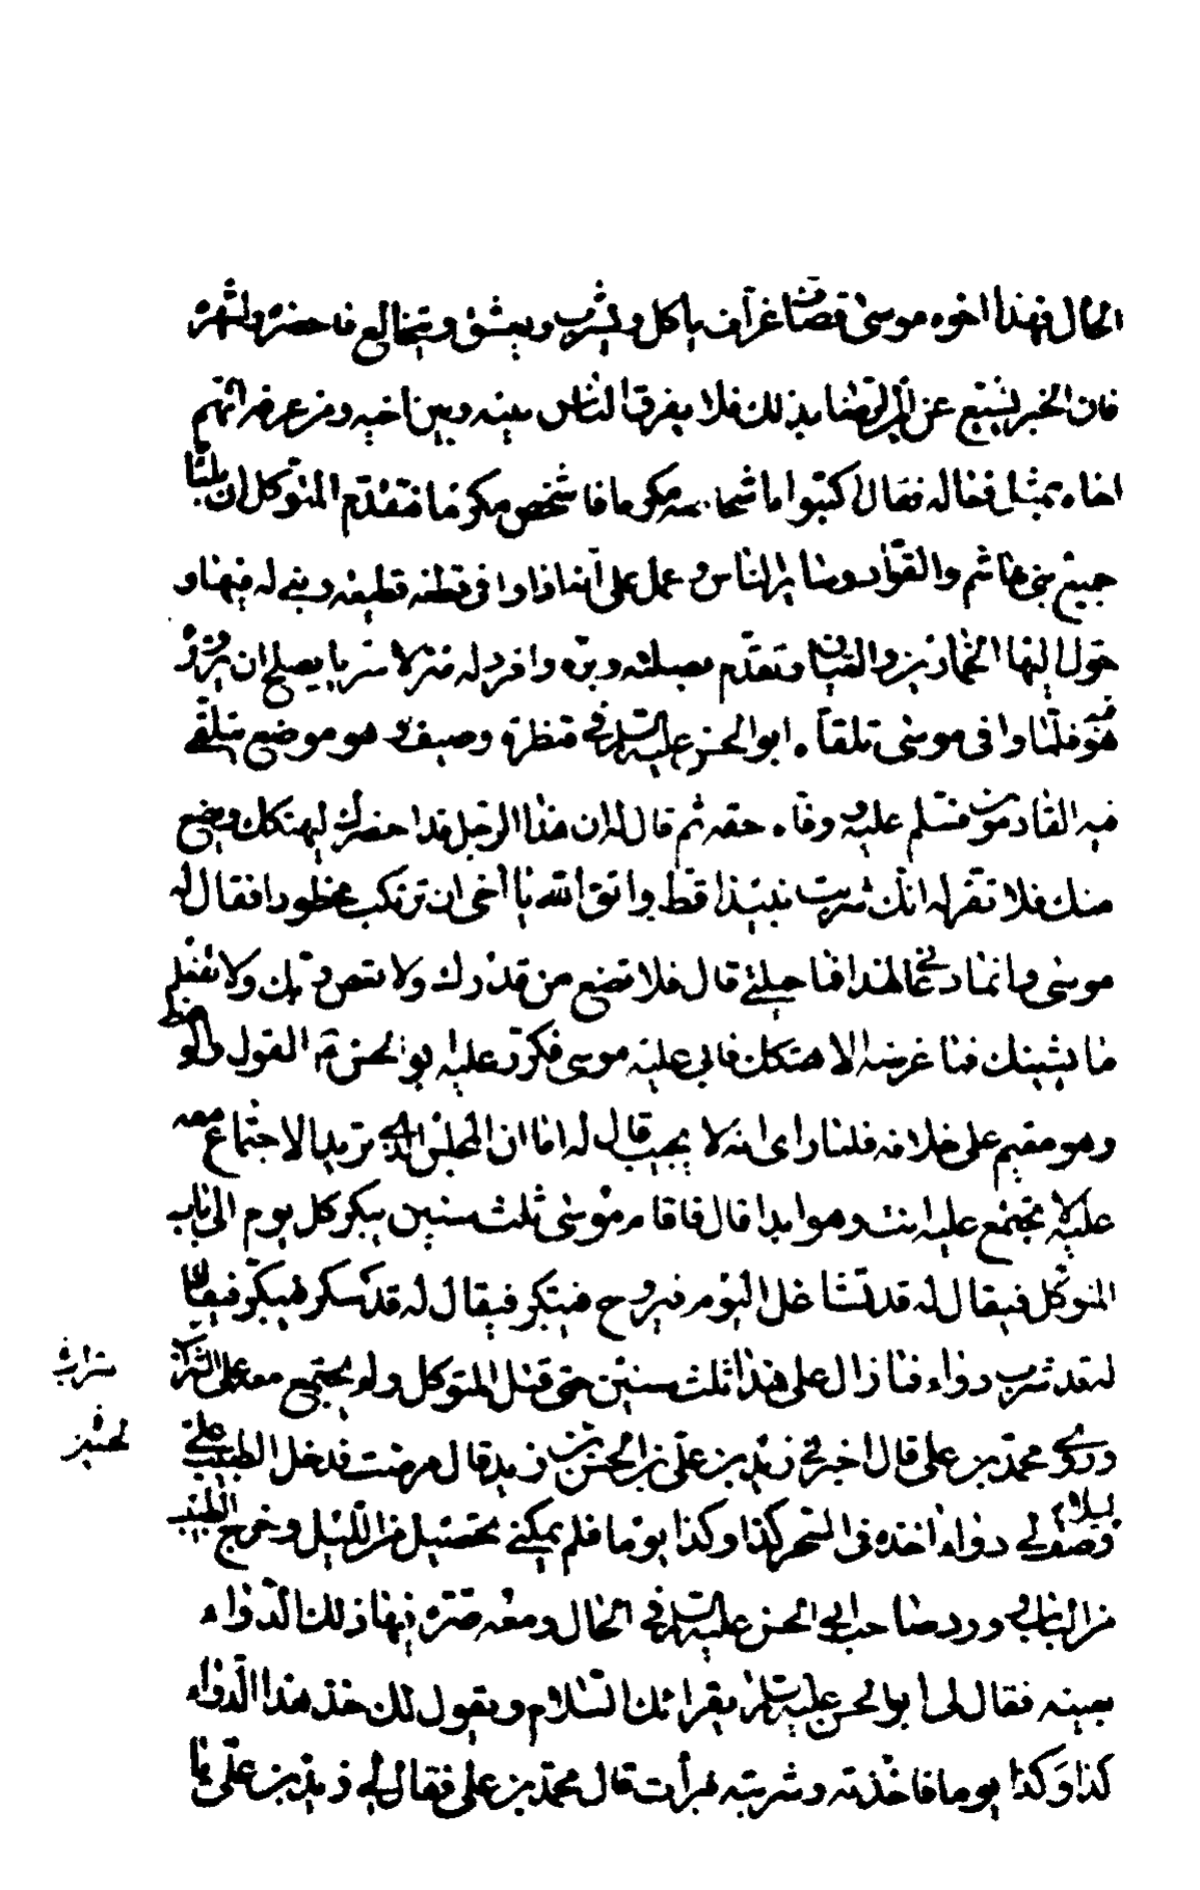 الحال فهذا اخوه موسى قصاف عزاف ياكل ويشرب ويعشق ويتخالع فاحضره واشهره
فان الخبر يشيع عن ابن الرضا بذلك فلا يفرق الناس بينه وبين اخيه ومن عرفه اتهم
اخاه بمثل فعاله فقال اكتبوا باشخاصه مكرما فاشخص مكرما فتقدم المتوكل ان يلقاه
جميع بني هاشم والقواد وسائر الناس وعمل على انه اذا وافى قطعه قطيعة وبنى له فيها و
حول اليها الخمارين والقيان وتقدم بصلته وبره وافرد له منزلا سريا يصلح ان يزوره
هو فيه فلما وافى موسى تلقاه ابو الحسن عليه السلام في قنطرة وصيف وهو موضع يتلقى
فيه القادمون فسلم عليه ووفاه حقه ثم قال له ان هذا الرجل قد احضرك ليهتكك ويضع
منك فلا تقر له انك شربت نبيذا قط واتق الله يا اخي ان ترتكب محظورا فقال له
موسى وانما دعاني لهذا فما حيلتي قال فلا تضع من قدرك ولا تعص ربك ولا تفعل
ما يشينك فما غرضه الا هتكك فابى عليه موسى فكرر عليه ابو الحسن ع القول والوعظ
وهو مقيم على خلافه فلما راى انه لا يجيب قال له اما ان المجلس الذي تريد الاجتماع معه
عليه لا تجتمع عليه انت وهو ابدا قال فاقام موسى ثلث سنين يبكر كل يوم الى باب
المتوكل فيقال له قد تشاغل اليوم فيروح فيبكر فيقال له قد سكر فيبكر فيقال له
لقد شرب دواء فما زال على هذا ثلث سنين حتى قتل المتوكل ولم يجتمع معه على شراب
شرابه
وروى محمد بن علي قال اخبرني زيد بن علي بن الحسن بن زيد قال مرضت فدخل الطبيب علي
ليلا وصف لي دواء اخذه في السحر كذا وكذا يوما فلم يمكني تحصيله من الليل وخرج الطبيب
من الباب وورد صاحب ابي الحسن عليه السلام في الحال ومعه صرة فيها ذلك الدواء
بعينه فقال لي ابو الحسن عليه السلام يقرائك السلام ويقول لك خذ هذا الدواء
كذا وكذا يوما فاخذته وشربته فبرأت قال محمد بن علي فقال لي زيد بن علي يا